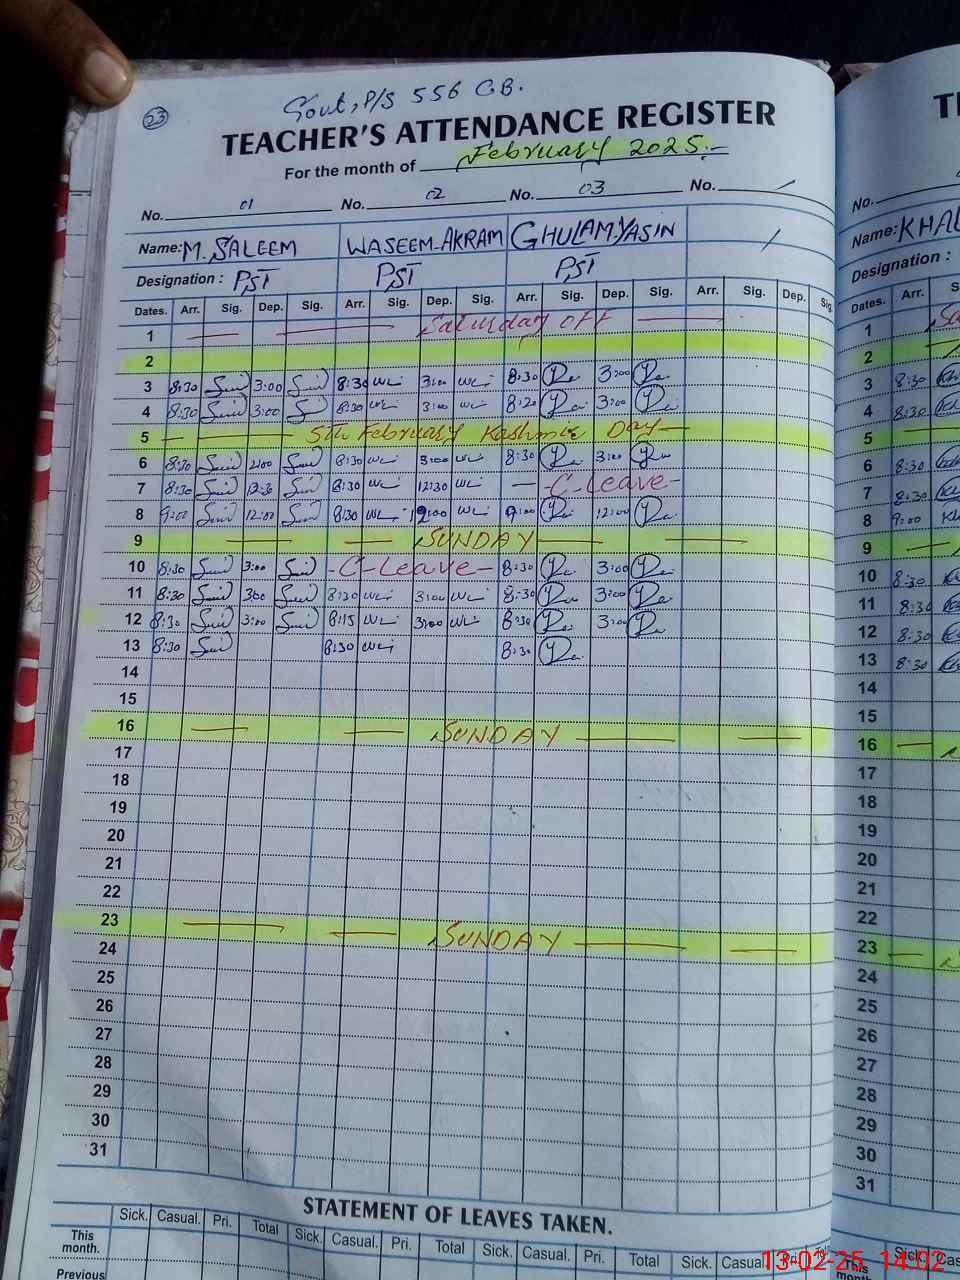 23
Govt, P/S 556 G.B.
TEACHER'S ATTENDANCE REGISTER
For the month of February 2025.-
No. 01 No. 02 No. 03 No. /
Name: M. SALEEM WASEEM-AKRAM GHULAM-YASIN /
Designation : PST PST PST
Dates. Arr. Sig. Dep. Sig. Arr. Sig. Dep. Sig. Arr. Sig. Dep. Sig. Arr. Sig. Dep. Sig.
1 Saturday OFF
2
3 8:30 3:00 8:30 3:00 8:30 3:00
4 8:30 3:00 8:30 3:00 8:20 3:00
5 5th February Kashmir Day
6 8:30 2:00 8:30 3:00 8:30 3:00
7 8:30 12:30 8:30 12:30 - C-Leave -
8 9:00 12:00 8:30 12:00 9:00 12:00
9 SUNDAY
10 8:30 3:00 - C-Leave - 8:30 3:00
11 8:30 300 8:30 3:00 8:30 3:00
12 8:30 3:00 8:15 3:00 8:30 3:00
13 8:30 8:30 8:30
14
15
16 SUNDAY
17
18
19
20
21
22
23 SUNDAY
24
25
26
27
28
29
30
31
STATEMENT OF LEAVES TAKEN.
Sick. Casual. Pri. Total Sick. Casual. Pri. Total Sick. Casual. Pri. Total Sick. Casual. Pri.
This month.
Previous
No.
Name: KHAL
Designation :
Dates. Arr.
1
2
3 8:30
4 8:30
5
6 8:30
7 8:30
8 9:00
9
10 8:30
11 8:30
12 8:30
13 8:30
14
15
16
17
18
19
20
21
22
23
24
25
26
27
28
29
30
31
Sick. Cas
This month.
13-02-25 14:02